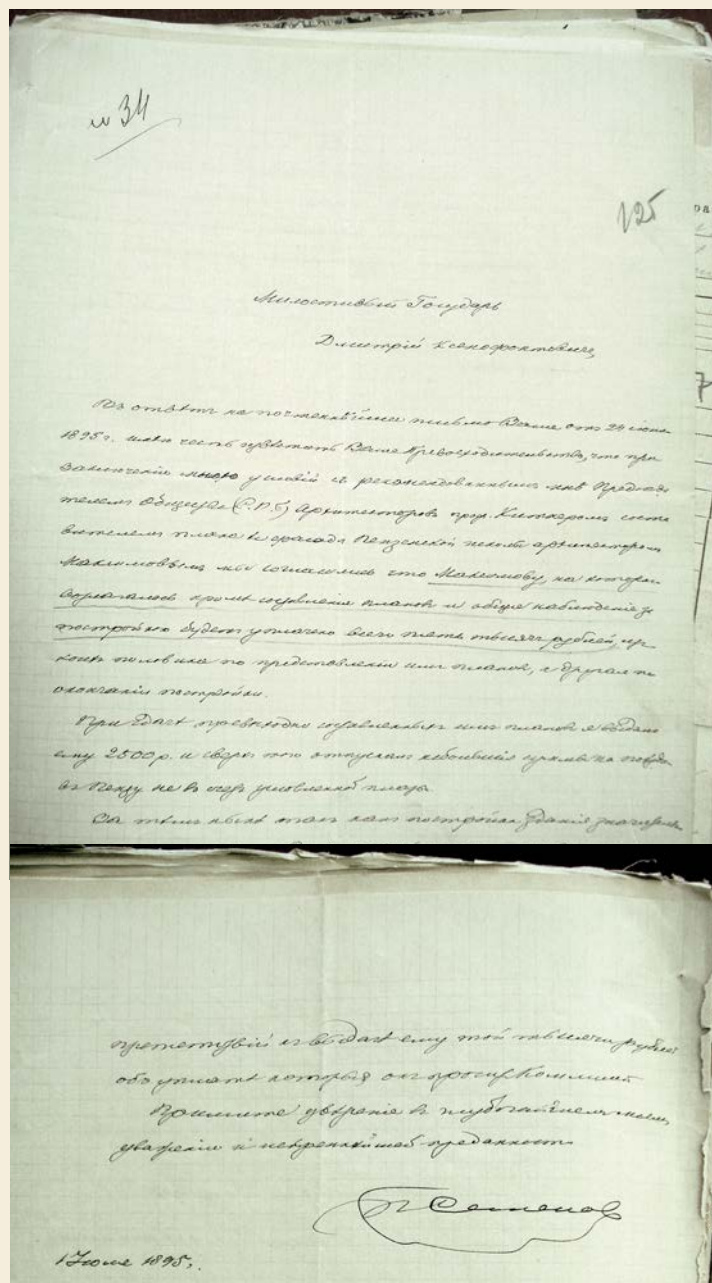 № 34
125
Милостивый Государь
Дмитрій Ксенофонтовичъ,
Въ отвѣтъ на почтеннѣйшее письмо Ваше отъ 24 іюня
1895 г. имѣю честь увѣдомить Ваше Превосходительство, что при
заключеніи мною условій съ рекомендованнымъ мнѣ Предсѣда
телемъ Общества (С.П.Б) Архитекторовъ проф. Китнеромъ соста
вителемъ плана и фасада Пензенской школы архитекторомъ
Максимовымъ мы согласились что Максимову, на котораго
возлагалось кромѣ составленія плановъ и общее наблюденіе за
постройкою будетъ уплачено всего пять тысячъ рублей, из
коихъ половина по представленіи имъ плановъ, а другая по
окончаніи постройки.
При сдачѣ превосходно составленныхъ имъ плановъ я выдалъ
ему 2500 р. и сверхъ того отпускалъ небольшія суммы на поѣзды
въ Пензу не въ счетъ условленной платы.
За тѣмъ такъ какъ постройка зданія
препятствій къ выдачѣ ему той тысячи рублей
объ уплатѣ которыхъ онъ проситъ
Примите увѣреніе въ глубочайшемъ моемъ
уваженіи и искреннѣйшей преданности
П Семенов
1 Іюля 1895 г.